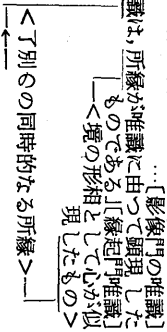 …[影像門の唯識]
識は，所縁が唯識に由って顕現した
ものである」[縁起門唯識]
<境の形相として心が似
現したもの>
<了別の同時的なる所縁>